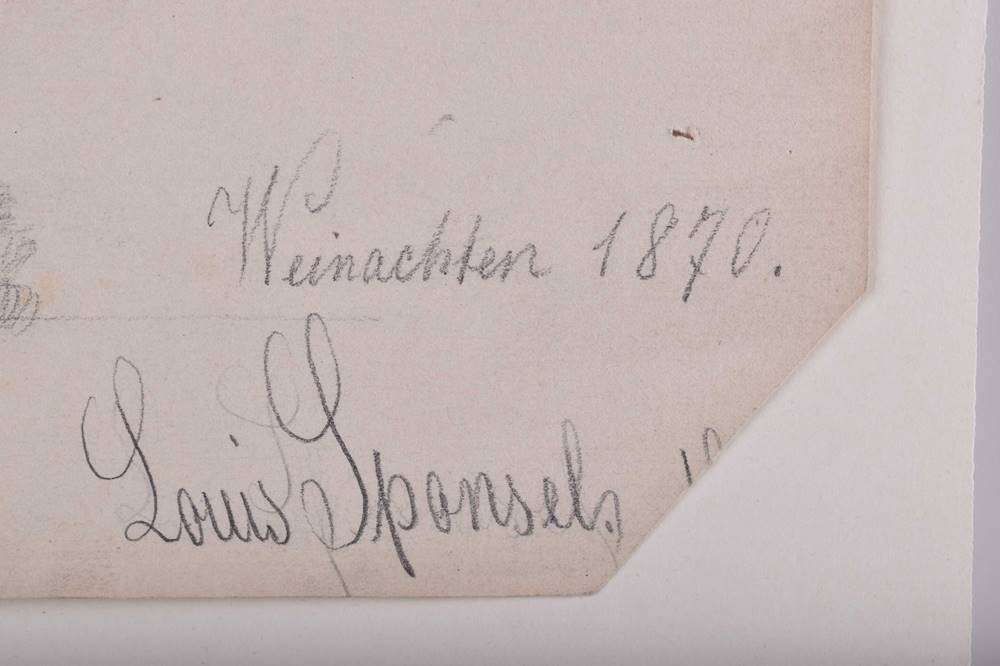 Weinachten 1870.
Louis Sponsel